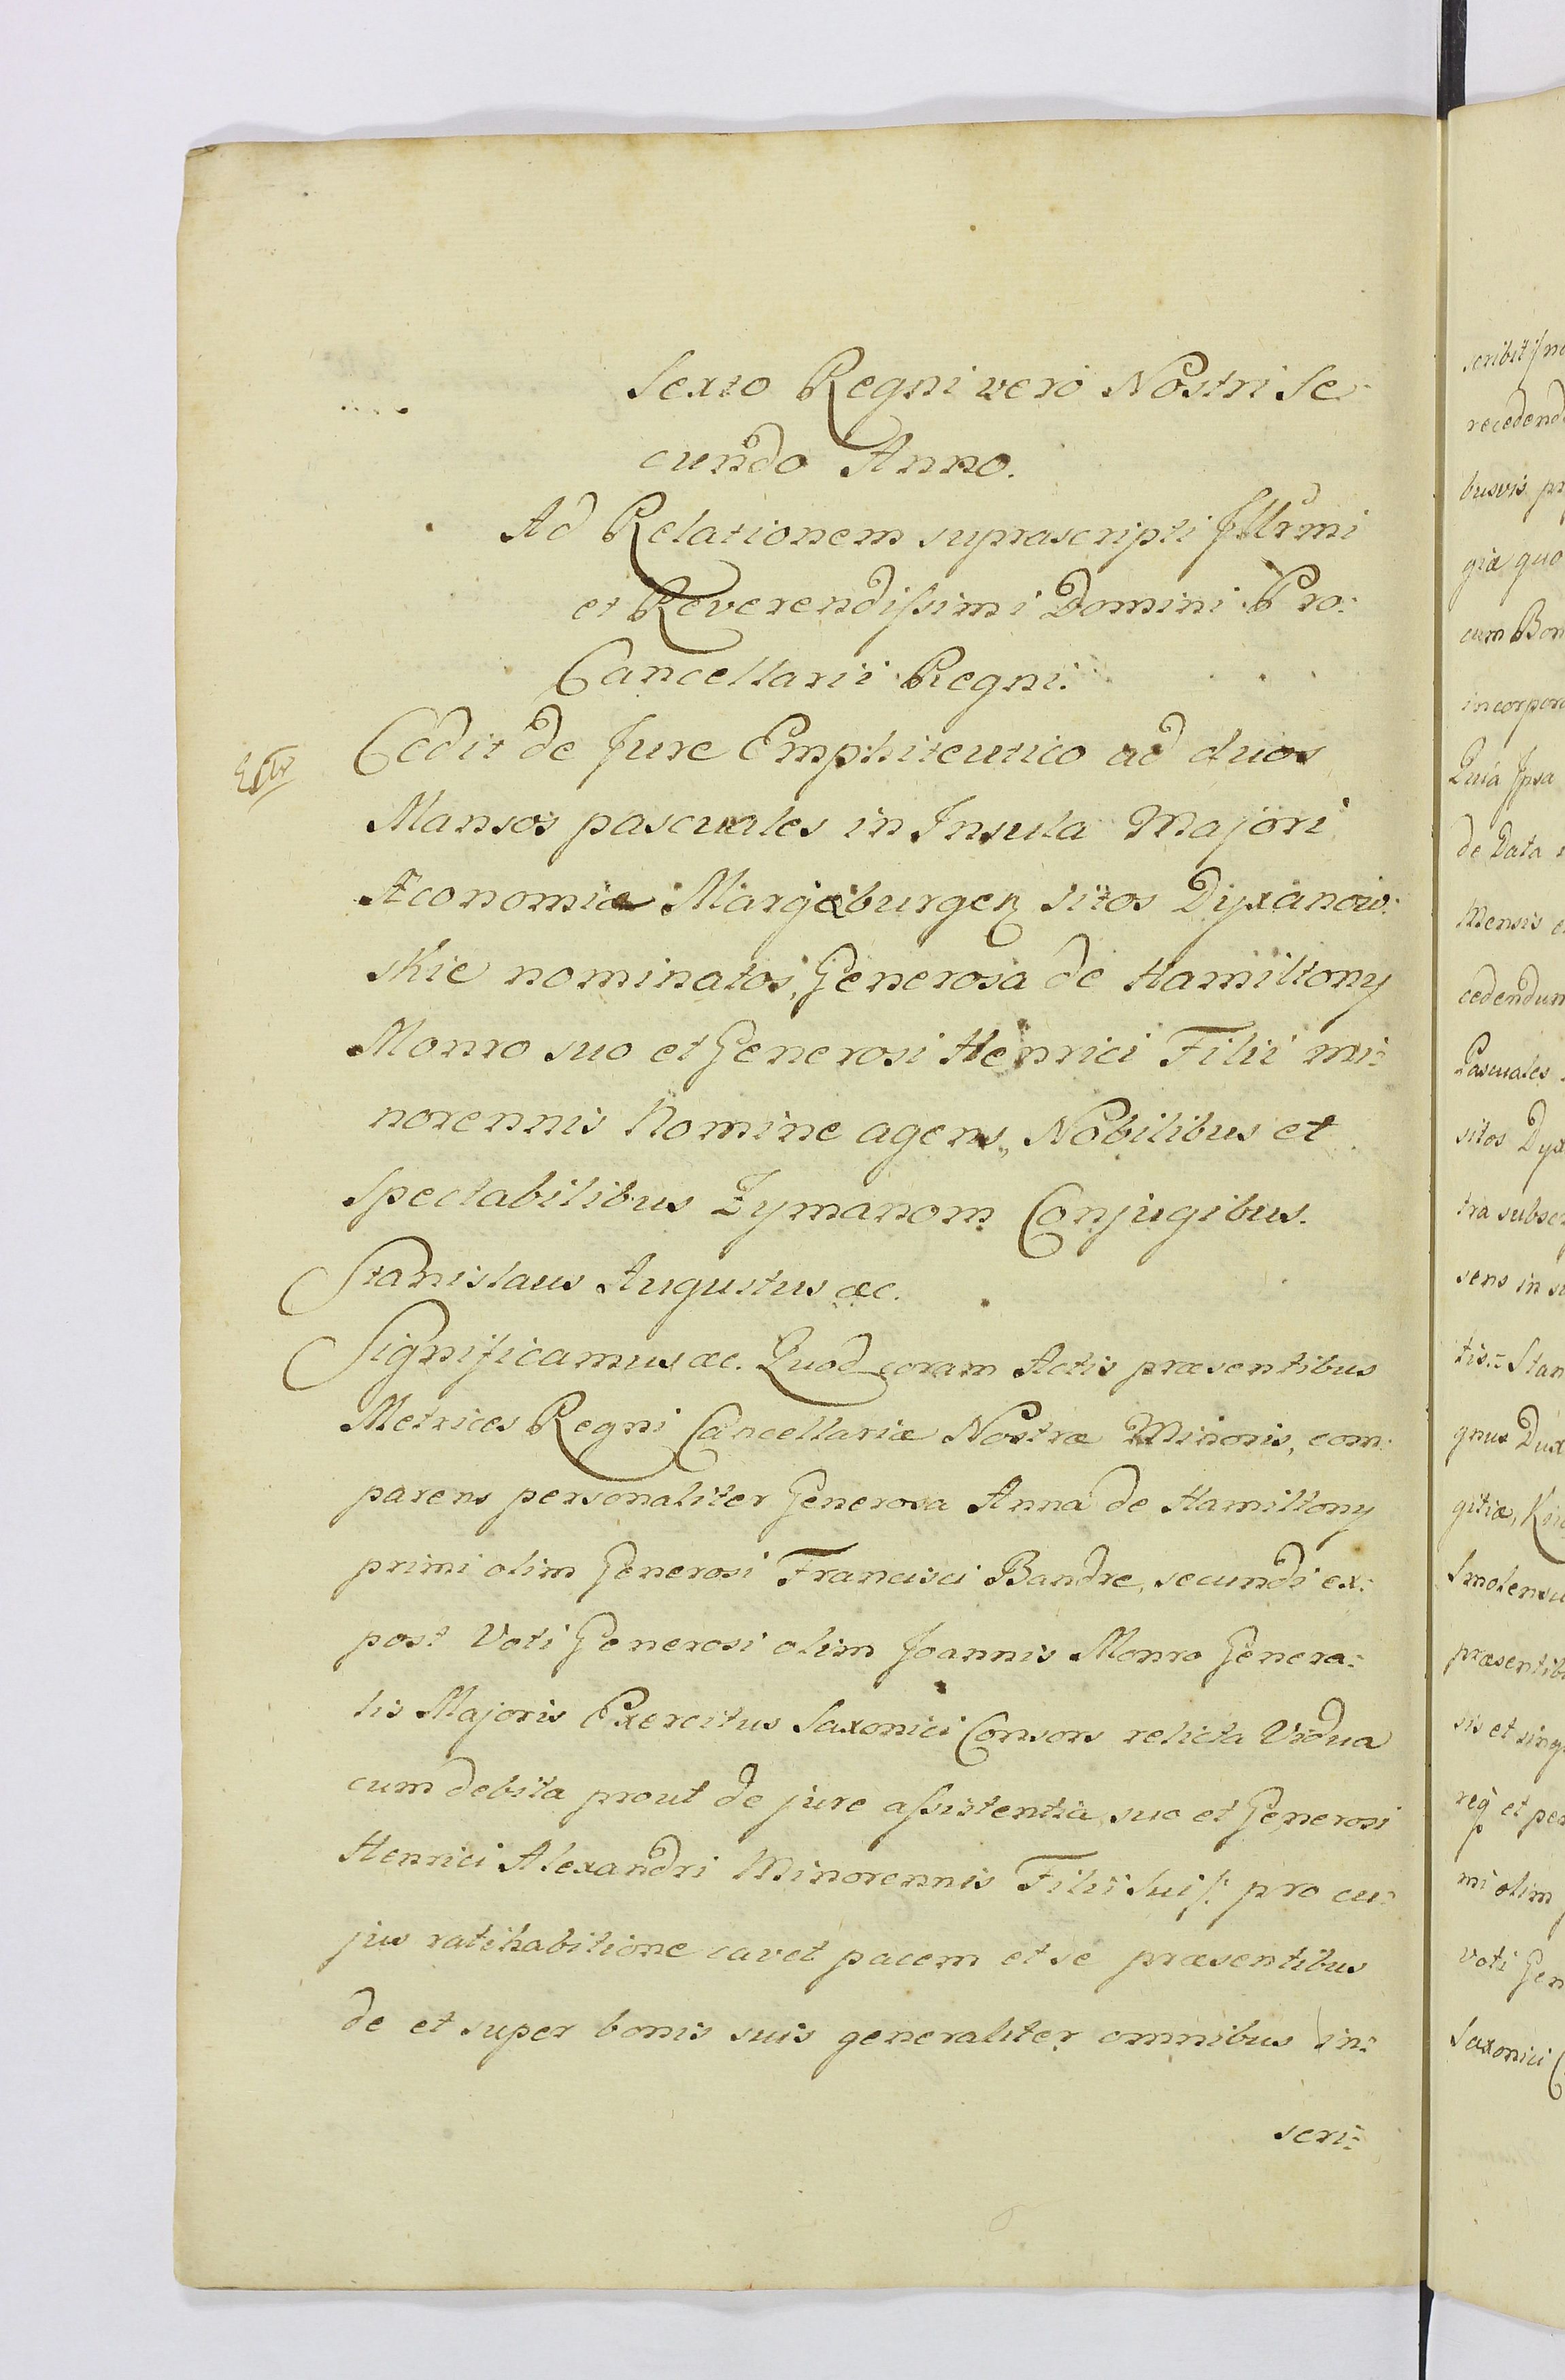 Sexto Regni vero Nostri Se-
cundo Anno.
Ad Relationem suprascripti Jllrmi
et Reverendissimi Domini Pro:
Cancellarii Regni.
Cedit de Jure Emphiteutico ad duos
Mansos pascuales in Insula Majori
Æconomiæ Margæburgen sitos Dyxanow:
skie nominatos, Generosa de Hamiltony
Monro suo et Generosi Henrici Filii mi:
norennis Nomine agens, Nobilibus et
Spectabilibus Zymanom Conjugibus.
Stanislaus Augustus æc.
Significamus æc. Quod coram Actis præsentibus
Metrices Regni Cancellariæ Nostræ Minoris, com:
parens personaliter Generosa Anna de Hamiltony
primi olim Generosi Francisci Bandre, secundi ex:
post Voti Generosi olim Joannis Monro Genera:
lis Majoris Exercitus Saxonici Consors relicta Vidua
cum debita prout de jure assistentia, suo et Generosi
Henrici Alexandri Minorennis Filii Sui /: pro cu:
jus ratihabitione cavet pacem et se præsentibus
de et super bonis suis generaliter omnibus in:
scri:
recedend
busvis pr
giæ quo
cum Bon
incorpora
Quia Jpsa
de Data
Mensis
cedendum
Pascuales
sitos Dyx
tra subscr
sens in su
tis:- Stan
gnus Dux
gitiæ, Kio
Smolensci
præsentib
sis et sing
req et per
mi olim
Voti Gen
Saxonici C